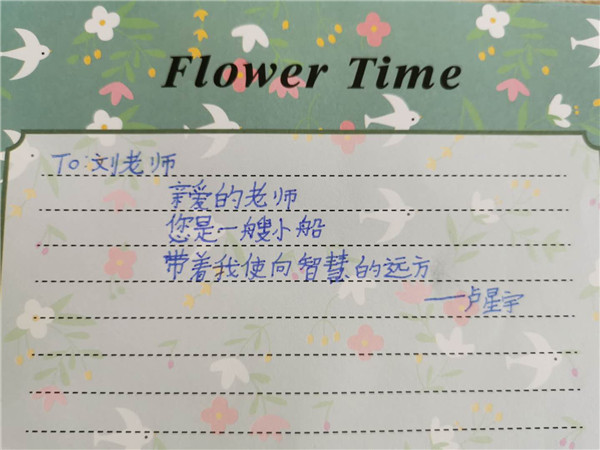 Flower Time
To:刘老师
亲爱的老师
您是一艘小船
带着我使向智慧的远方
——卢星宇